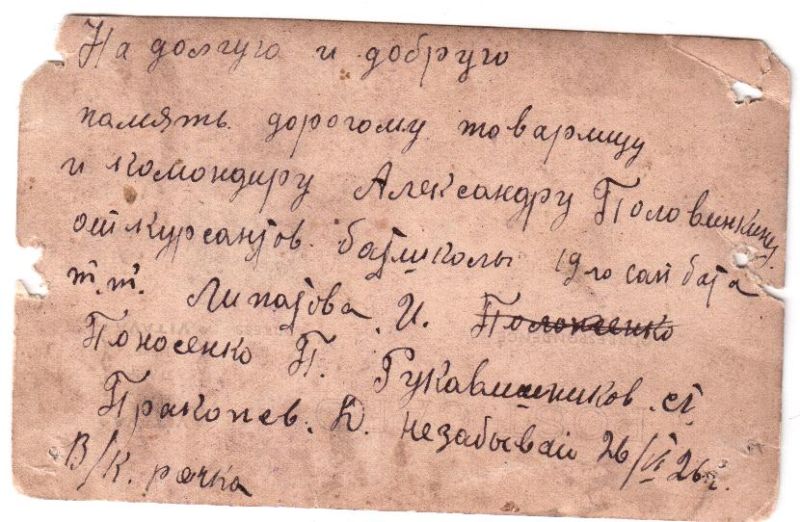 На долгую и добрую
память дорогому товарищу
и командиру Александру Половинкину
от курсантов батшколы 19го сап бата
т.т. Липатова И. Полонсенко
Поносенко П. Рукавишников. А
Пракопев. К. незабывай 26/VI 26г.
В/К. речка